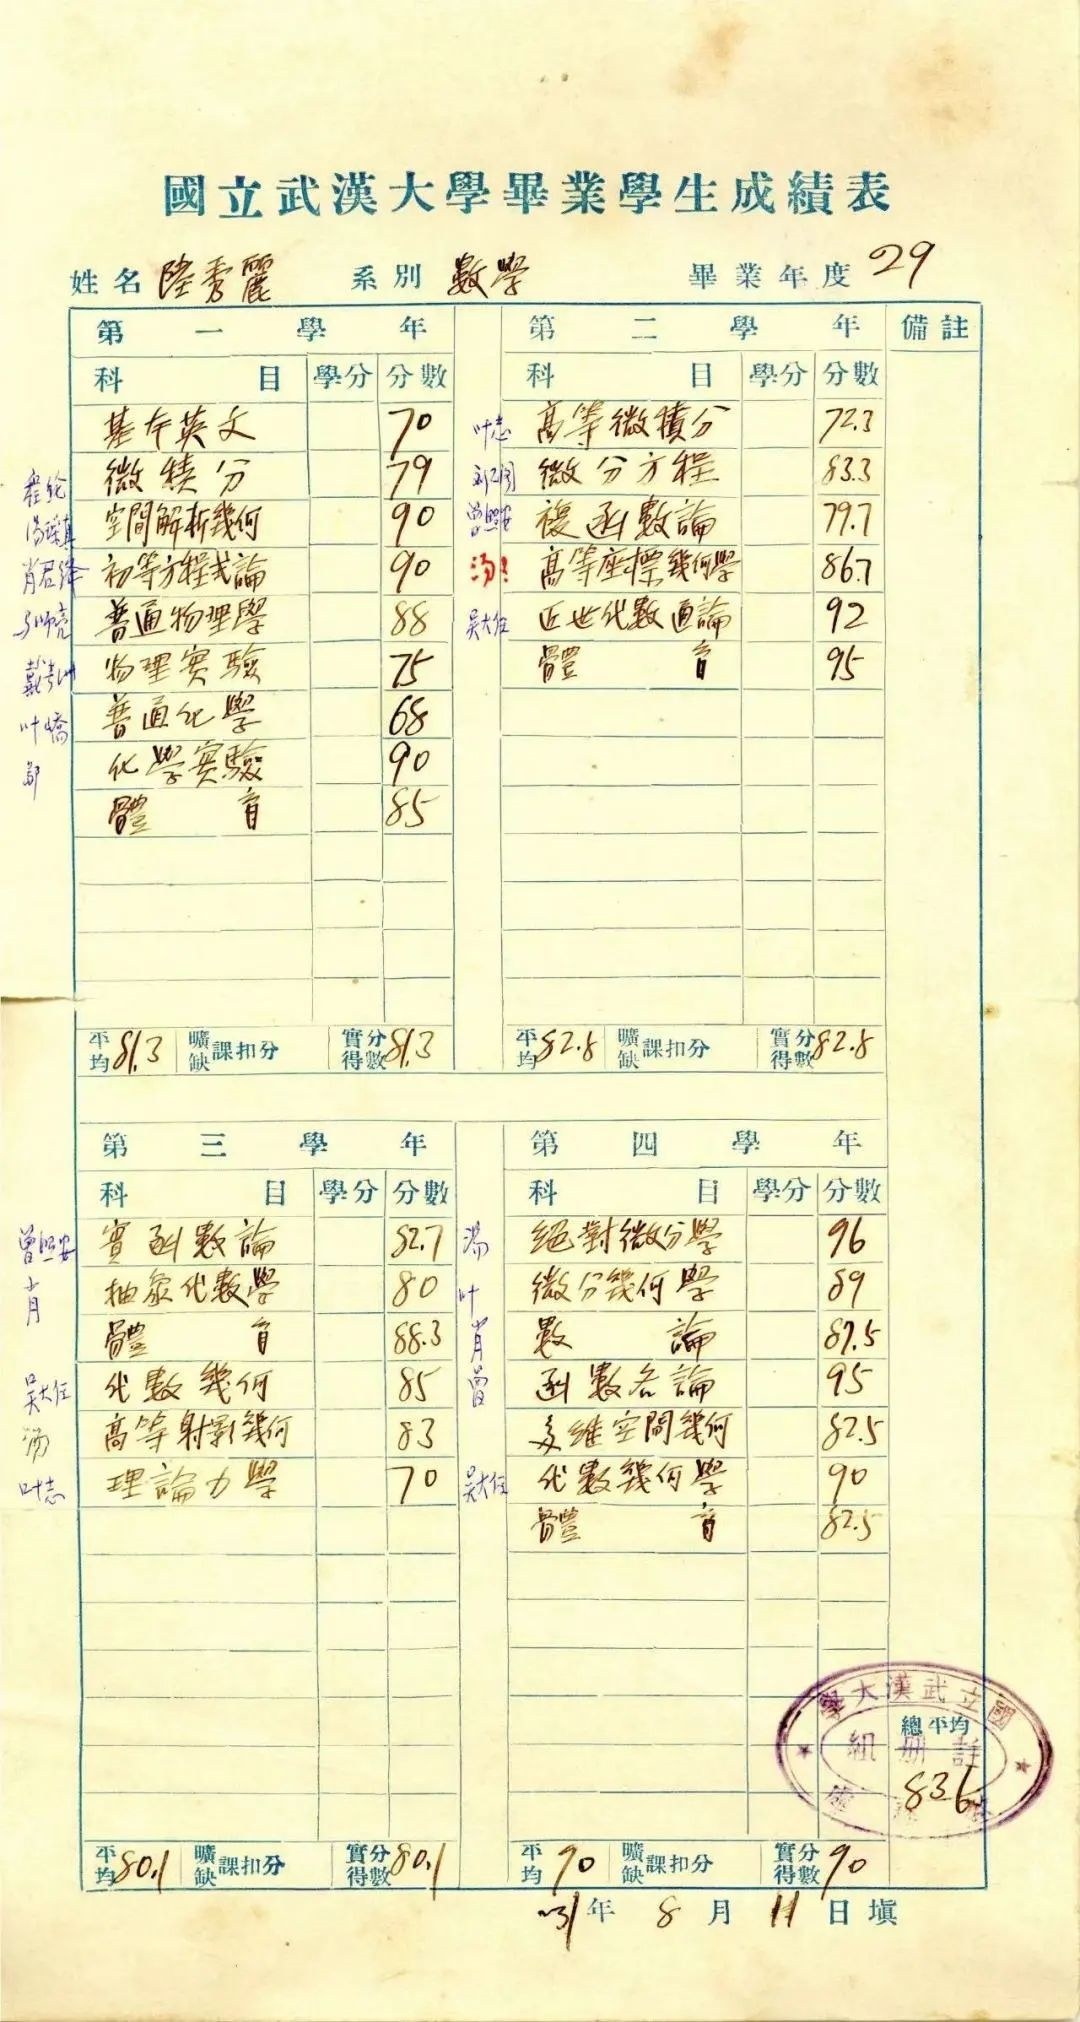 國立武漢大學畢業學生成績表
姓名 陸秀麗 系別 數學 畢業年度 29
第一學年
科目 學分 分數
基本英文 70
微積分 79
空間解析幾何 90
初等方程式論 90
普通物理學 88
物理實驗 75
普通化學 68
化學實驗 90
體育 85
平均 81.3 曠缺課扣分 實得分數 81.3
程纶
汤璪真
肖君绛
马师亮
叶峤
第二學年 備註
科目 學分 分數
叶志 高等微積分 72.3
微分方程 83.3
曾昭安 複函數論 79.7
汤! 高等座標幾何學 86.7
吴大任 近世代數通論 92
體育 95
平均 82.8 曠缺課扣分 實得分數 82.8
第三學年
科目 學分 分數
曾昭安 實函數論 82.7
肖 抽象代數學 80
體育 88.3
吴大任 代數幾何 85
汤 高等射影幾何 83
叶志 理論力學 70
平均 80.1 曠缺課扣分 實得分數 80.1
第四學年
科目 學分 分數
汤 絕對微分學 96
叶 微分幾何學 89
肖 數論 87.5
曾 函數各論 95
多維空間幾何 82.5
吴大任 代數幾何學 90
體育 82.5
平均 90 曠缺課扣分 實得分數 90
國立武漢大學
註冊組
總平均
83.6
31年 8月 11日填